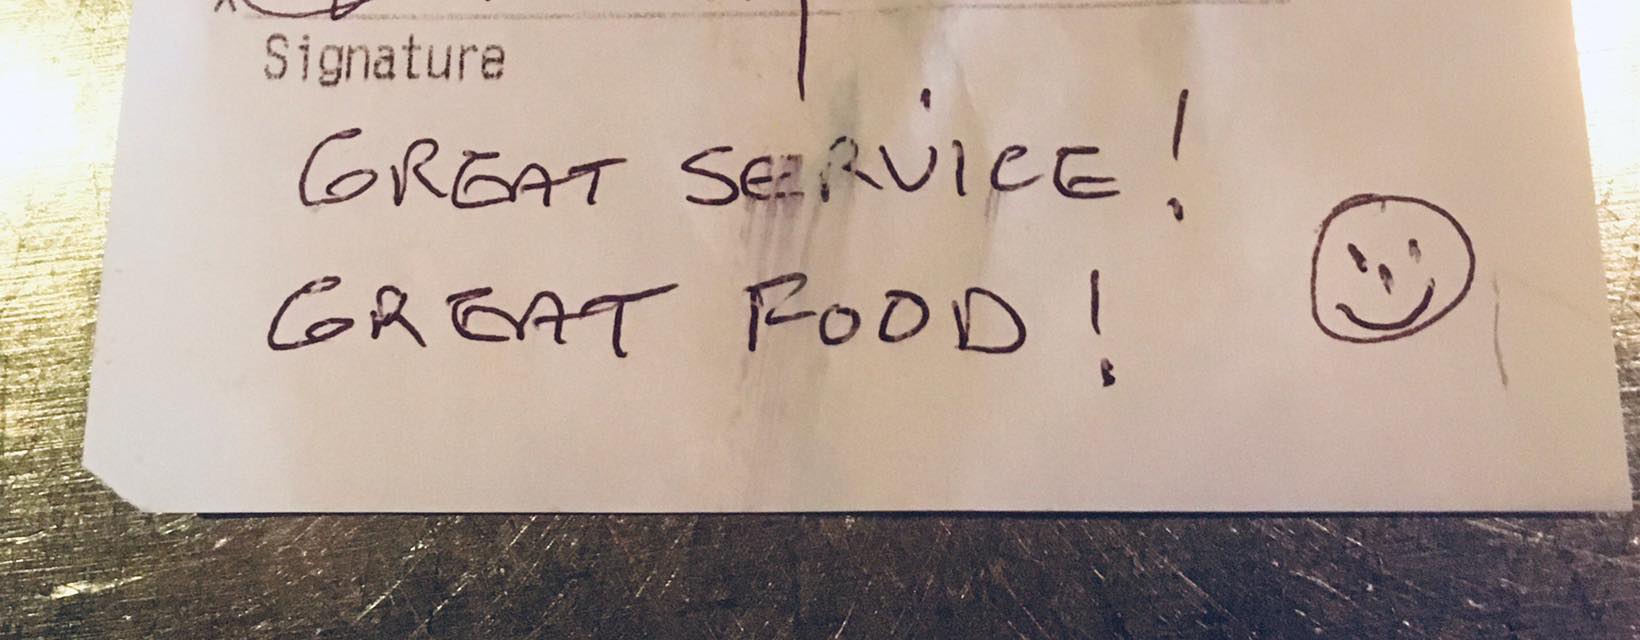 Signature
GREAT SERVICE!
GREAT FOOD!